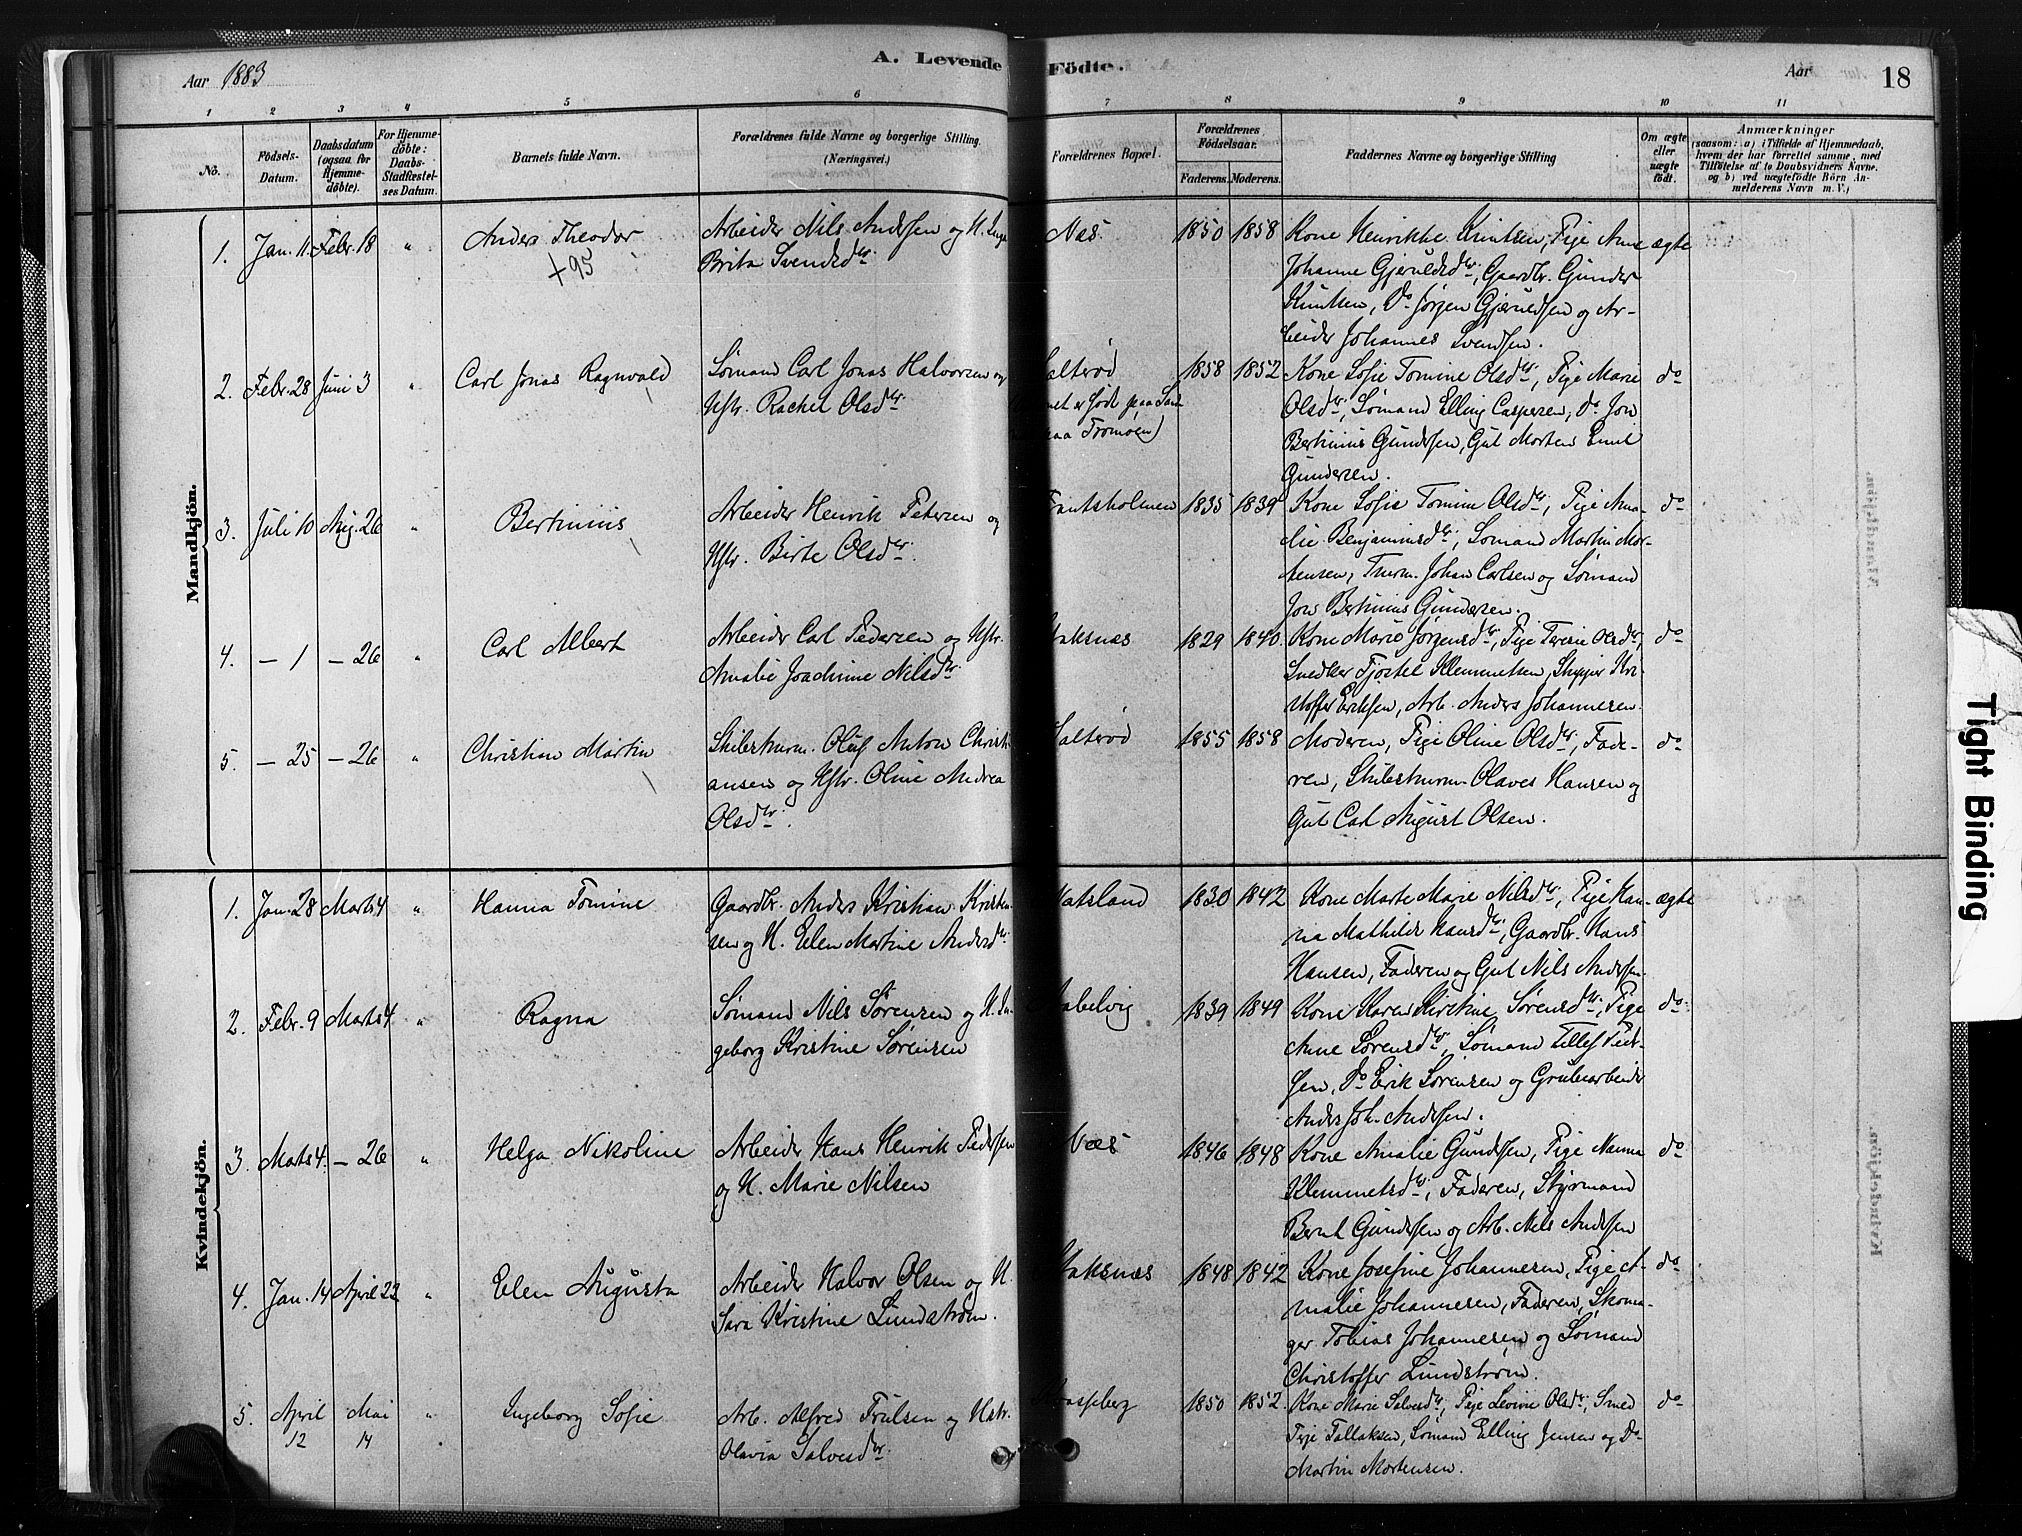 Aar 1883
A. Levende Födte.
Aar 18
1 2 3 4 5 6 7 8 9 10 11
No.
Födsels-Datum.
Daabsdatum (ogsaa for Hjemmedöbte).
For Hjemmedöbte: Daabs-Stadfæstelses Datum.
Barnets fulde Navn.
Forældrenes fulde Navne og borgerlige Stilling (Næringsvei.)
Forældrenes Bopæl.
Forældrenes Födselsaar.
Faderens. Moderens.
Faddernes Navne og borgerlige Stilling
Om ægte eller uægte födt.
Anmærkninger
(saasom: a) i Tilfælde af Hjemmedaab, hvem der har forrettet samme, med Tilföielse af to Daabsvidners Navne, og b) ved uægtefödte Börn Anmelderens Navn m. V.)
Mandkjön.
1. Jan. 11. Febr. 18 " Anders Theodor +95
Arbeider Nils Andersen og H. Inga
Brita Svendsdtr.
Næs 1850 1858
Kone Henrikke Knutsen, Pige Anne ægte
Johanne Gjeruldsdtr, Gaardbr. Gunder
Knutsen, Do Jörgen Gjeruldsen og Ar-
beider Johannes Svendsen.
2. Febr. 28 Juni 3 " Carl Jonas Ragnvald
Sömand Carl Jonas Halvorsen og
Hstr. Rachel Olsdtr.
altröd 1858 1852
net er født paa Sand
paa Tromöen)
Kone Sofie Tomine Olsdtr, Pige Marie do
Olsdtr, Sömand Elling Caspersen, do Jon
Bertinius Gundersen, Gut Morten Emil
Gundersen.
3. Juli 10 Aug. 26 " Bertinius
Arbeider Henrik Petersen og
Hstr. Birte Olsdtr.
antsholmen 1835 1839
Kone Sofie Tomine Olsdtr, Pige Ama- do
lie Benjaminsdtr, Sömand Martin Mor-
tensen, Tmrm. Johan Carlsen og Sömand
Jon Bertinius Gundersen.
4. - 1 - 26 " Carl Albert
Arbeider Carl Pedersen og Hstr.
Amalie Joachime Nilsdtr
aksnæs 1829 1840.
Kone Maria Jörgensdtr, Pige Terese Olsdtr, do
Snedker Tjöstel Klemmetsen, Skipper Kri-
stoffer Eriksen, Arb. Anders Johannesen.
5. - 25 - 26 " Christian Martin
Skibstmrm. Oluf Anton Christi-
ansen og Hstr. Oline Andrea
Olsdtr.
altröd 1855 1858
Moderen, Pige Oline Olsdtr, Fade- do
ren, Skibstmrm. Olaves Hansen og
Gut Carl August Olsen.
Kvindekjön.
1. Jan. 28 Marts 4 " Hanna Tomine
Gaardbr. Anders Kristian Kristen-
sen og H. Elen Martine Andersdtr.
atsland 1830 1842
Kone Marte Marie Nilsdtr, Pige Han- ægte
na Mathilde Hansdtr, Gaardbr. Hans
Hansen, Faderen og Gut Nils Andersen
2. Febr. 9 Marts 4 " Ragna
Sömand Nils Sörensen og H. In-
geborg Kristine Sörensen
abelvig 1839 1849
Kone Karen Kirstine Sörensdtr, Pige do.
Anne Sörensdtr, Sömand Tellef Peder-
sen, Do Erik Sörensen og Grubearbeider
Anders Joh. Andersen.
3. Marts 4. - 26 " Helga Nikoline
Arbeider Hans Henrik Pedersen
og H. Marie Nilsen
Næs 1846 1848
Kone Amalie Gundersen, Pige Nanna do
Klemmetsdtr, Faderen, Styrmand
Bernt Gundersen og Arb. Nils Andersen
4. Jan. 14 April 22 " Elen Augusta
Arbeider Halvor Olsen og H.
Sara Kristine Lundström.
aksnæs 1848 1842
Kone Josefine Johannesen, Pige A- do
malie Johannesen, Faderen, Skoma-
ger Tobias Johannesen og Sömand
Christoffer Lundström.
5. April 12 Mai 14 " Ingeborg Sofie
Arb. Alfred Trulsen og Hstr.
Olavia Salvesdtr.
1850 1852.
Kone Marie Salvesdtr, Pige Levine Olsdtr, Smed do
Terje Tallaksen, Sömand Elling Jensen og Do
Martin Mortensen.
Tight Binding